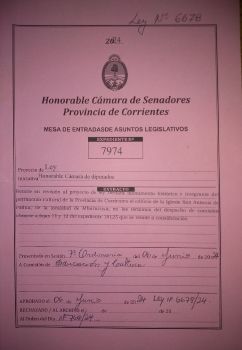 Ley Nº 6678
2024
Honorable Cámara de Senadores
Provincia de Corrientes
MESA DE ENTRADAS DE ASUNTOS LEGISLATIVOS
EXPEDIENTE Nº
7974
Proyecto de Ley
Iniciativa Honorable Cámara de diputados
EXTRACTO
Vuelto en revisión al proyecto de ley monumento histórico e integrante del
patrimonio cultural de la Provincia de Corrientes al edificio de la iglesia San Antonio de
de la localidad de Mburucuyá, en los términos del despacho de comisión
obrante a fojas 11 y 12 del expediente
Presentado en Sesión 7º Ordinaria del 06 de Junio de 2024
A Comisión de Educación y Cultura
APROBADO el 06 de Junio de 2024 Ley Nº 6678/24.
RECHAZADO / AL ARCHIVO el de de 20
Al Orden del Día Nº 768/24